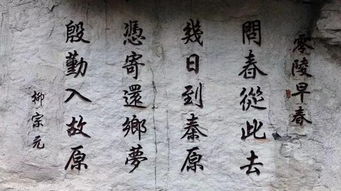 零陵早春
問春從此去
幾日到秦原
憑寄還鄉夢
殷勤入故原
柳宗元